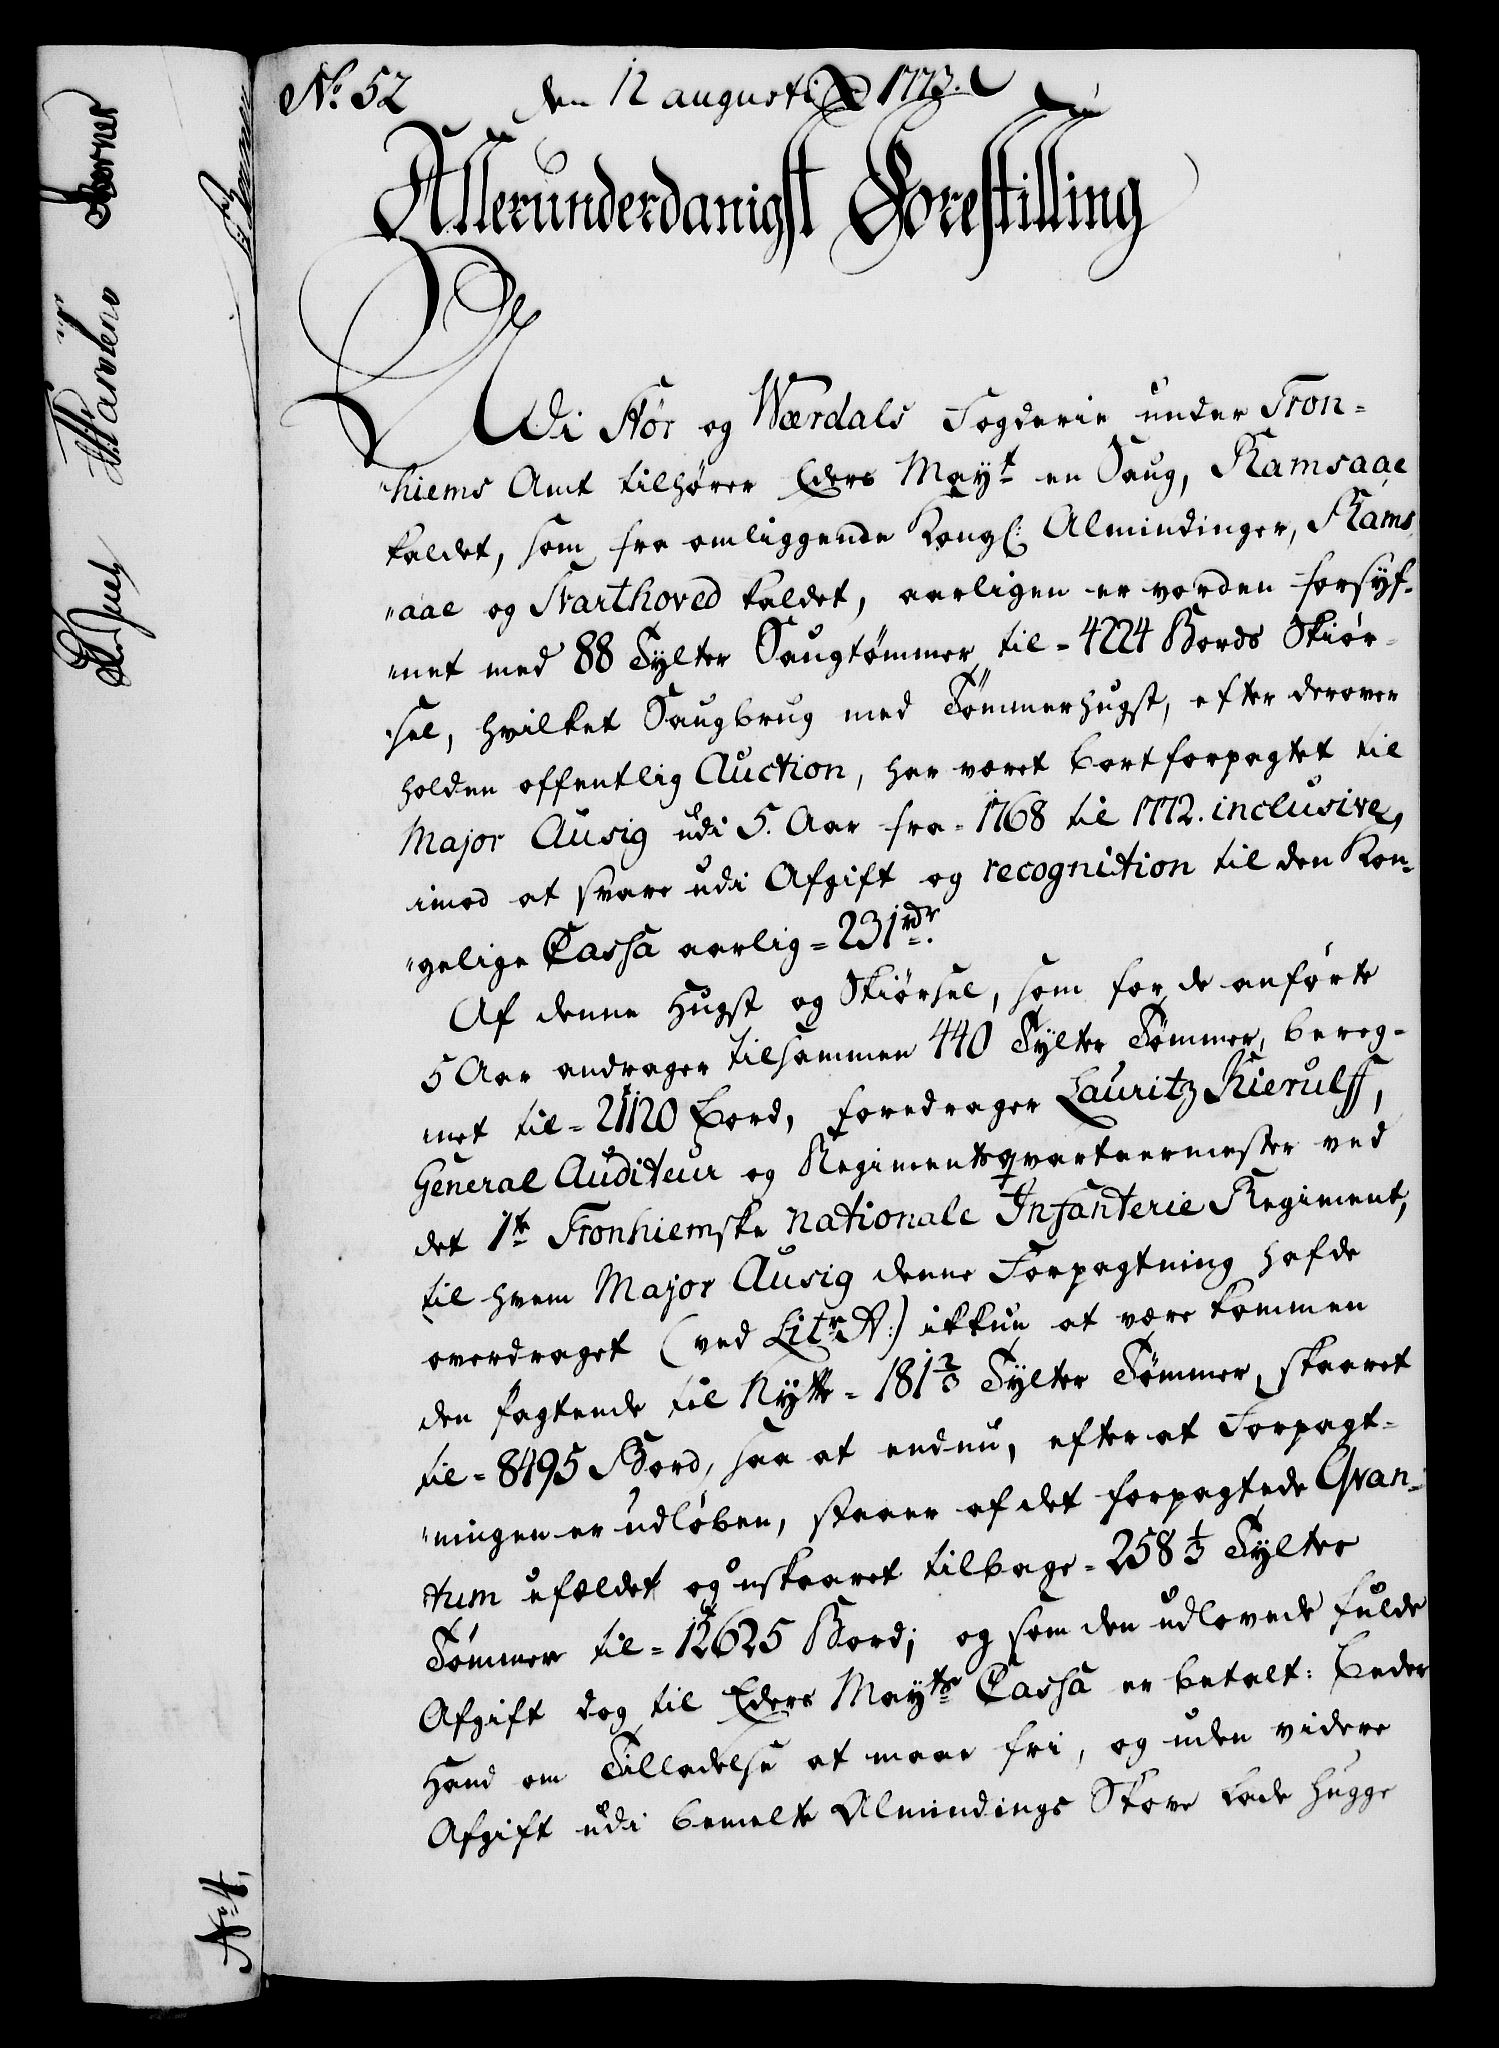 No. 52
den 12 augusti 1773.
Allerunderdanigst Forestilling
Udi Stör og Wærdals Fogderie under Tron-
hiems Amt tilhører Eders Mayt en Saug, Ramsaae
kaldet, som fra omliggende Kongl: Almindinger, Rams
"aae og Svarthoved kaldet, aarligen er vorden forsyf-
"net med 88 Tylter Saugtømmer til = 4224 Bords Skiør-
"sel, hvilket Saugbrug med Tømmerhugst, efter derover
holden offentlig Auction, har været bortforpagtet til
Major Ausig udi 5. Aar fra = 1768 til 1772. inclusive,
imod at svare udi Afgift og recognition til den Kon-
"gelige Cassa aarlig = 231 rdr.
Af denne Hugst og Skiørsel, som for de anførte
5 Aar andrager tilsammen 440 Tylter Tømmer, bereg-
net til = 21120 Bord, foredrager Lauritz Kierulff,
General Auditeur og Regimentsqvarteermester ved
det 1te Tronhiemske nationale Infanterie Regiment,
til hvem Major Ausig denne Forpagtning hafde
overdraget (ved Litr. A:) ikkun at være kommen
den fagtende til Nytte = 181 2/3 Tylter Tømmer, skaaret
til = 8495 Bord, saa at endnu, efterat Forpagt-
"ningen er udløben, staaer af det forpagtede Qvan-
tum ufældet og uskaaret tilbage = 258 1/3 Tylter
Tømmer til = 12625 Bord; og som den udlovede fulde
Afgift dog til Eders Mayts Cassa er betalt: Beder
Hand om Tilladelse at maae fri, og uden videre
Afgift udi bemelte Almindings Skove lade hugge
No 4,